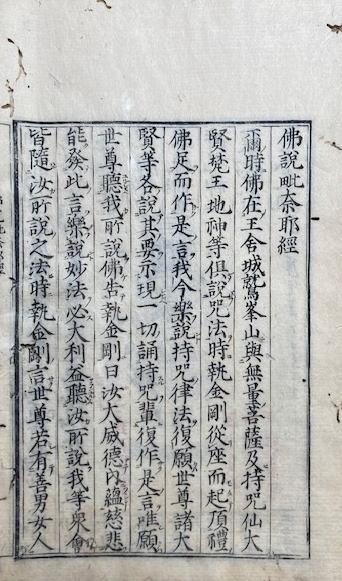 佛說毗奈耶經
爾時佛在王舍城鷲峯山與無量菩薩及持咒仙大
賢梵王地神等俱說咒法時執金剛從座而起頂禮
佛足而作是言我今樂說持咒律法復願世尊諸大
賢等各說其要示現一切誦持咒輩復作是言唯願
世尊聽我所說佛告執金剛曰汝大威德內蘊慈悲
能發此言樂說妙法必大利益聽汝所說我等衆會
皆隨汝所說之法時執金剛言世尊若有善男女人